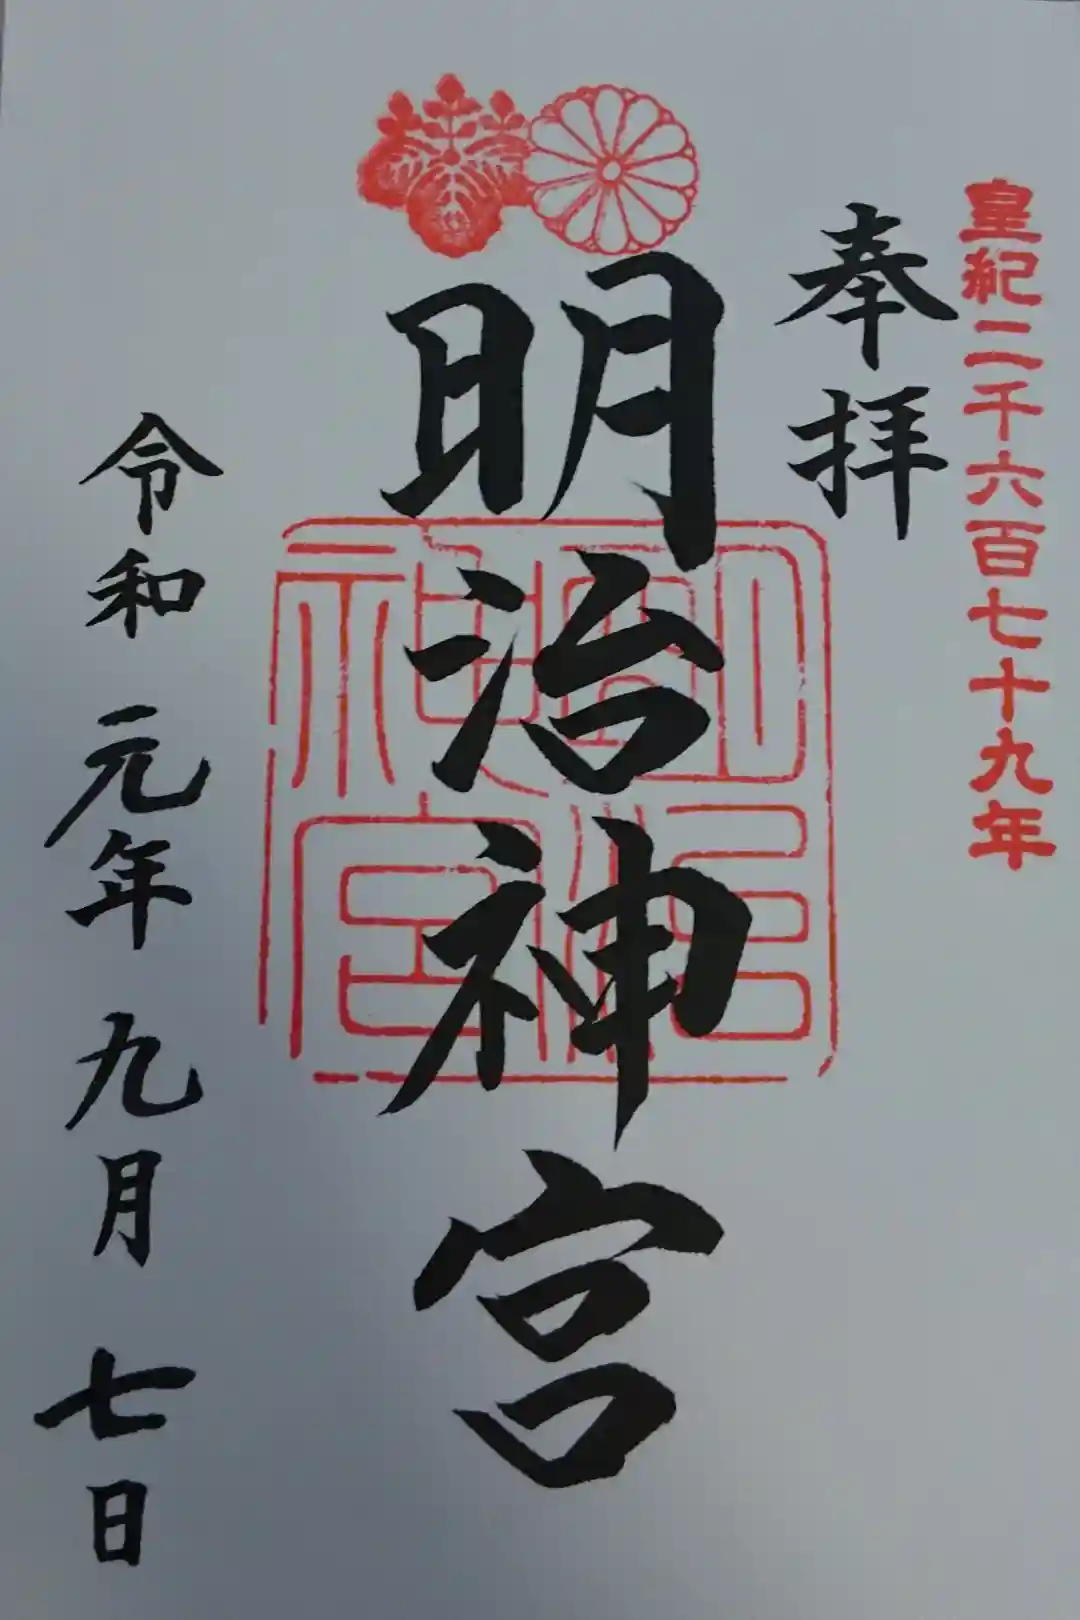 皇紀二千六百七十九年
奉拝
明治神宮
明治
神宮
令和元年九月七日